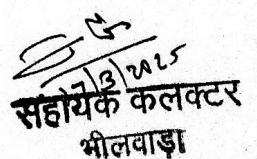 7/3/2025
सहायक कलक्टर
भीलवाड़ा